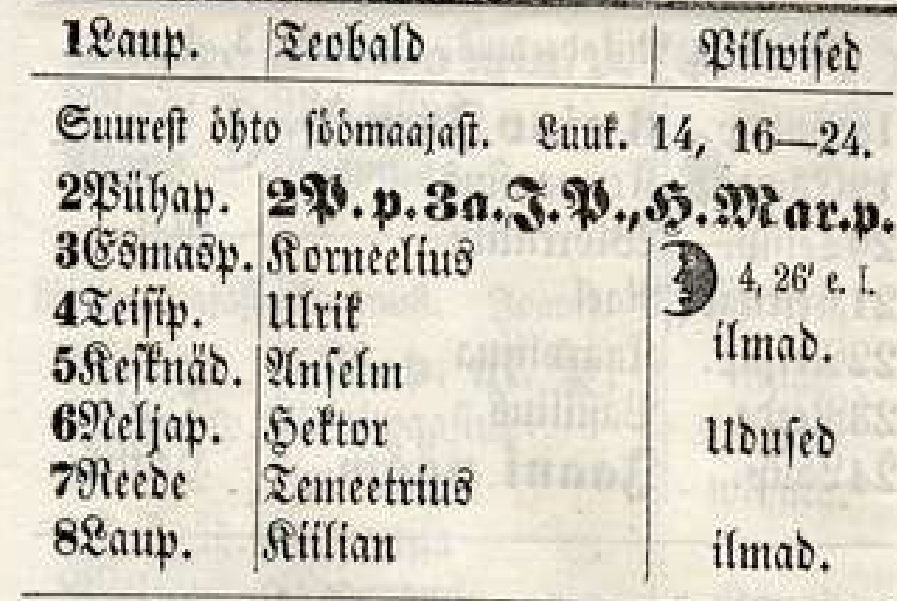 1 Laup. Teobald Pilwised
Suurest õhto söömaajast. Luuk. 14, 16—24.
2 Pühap. 2 P. p. 3 a. J. P., H. Mar. p.
3 Esmasp. Korneelius 4, 26' e. l.
4 Teisip. Ulrik ilmad.
5 Kesknäd. Anselm
6 Neljap. Hektor Udused
7 Reede Temeetrius
8 Laup. Kiilian ilmad.